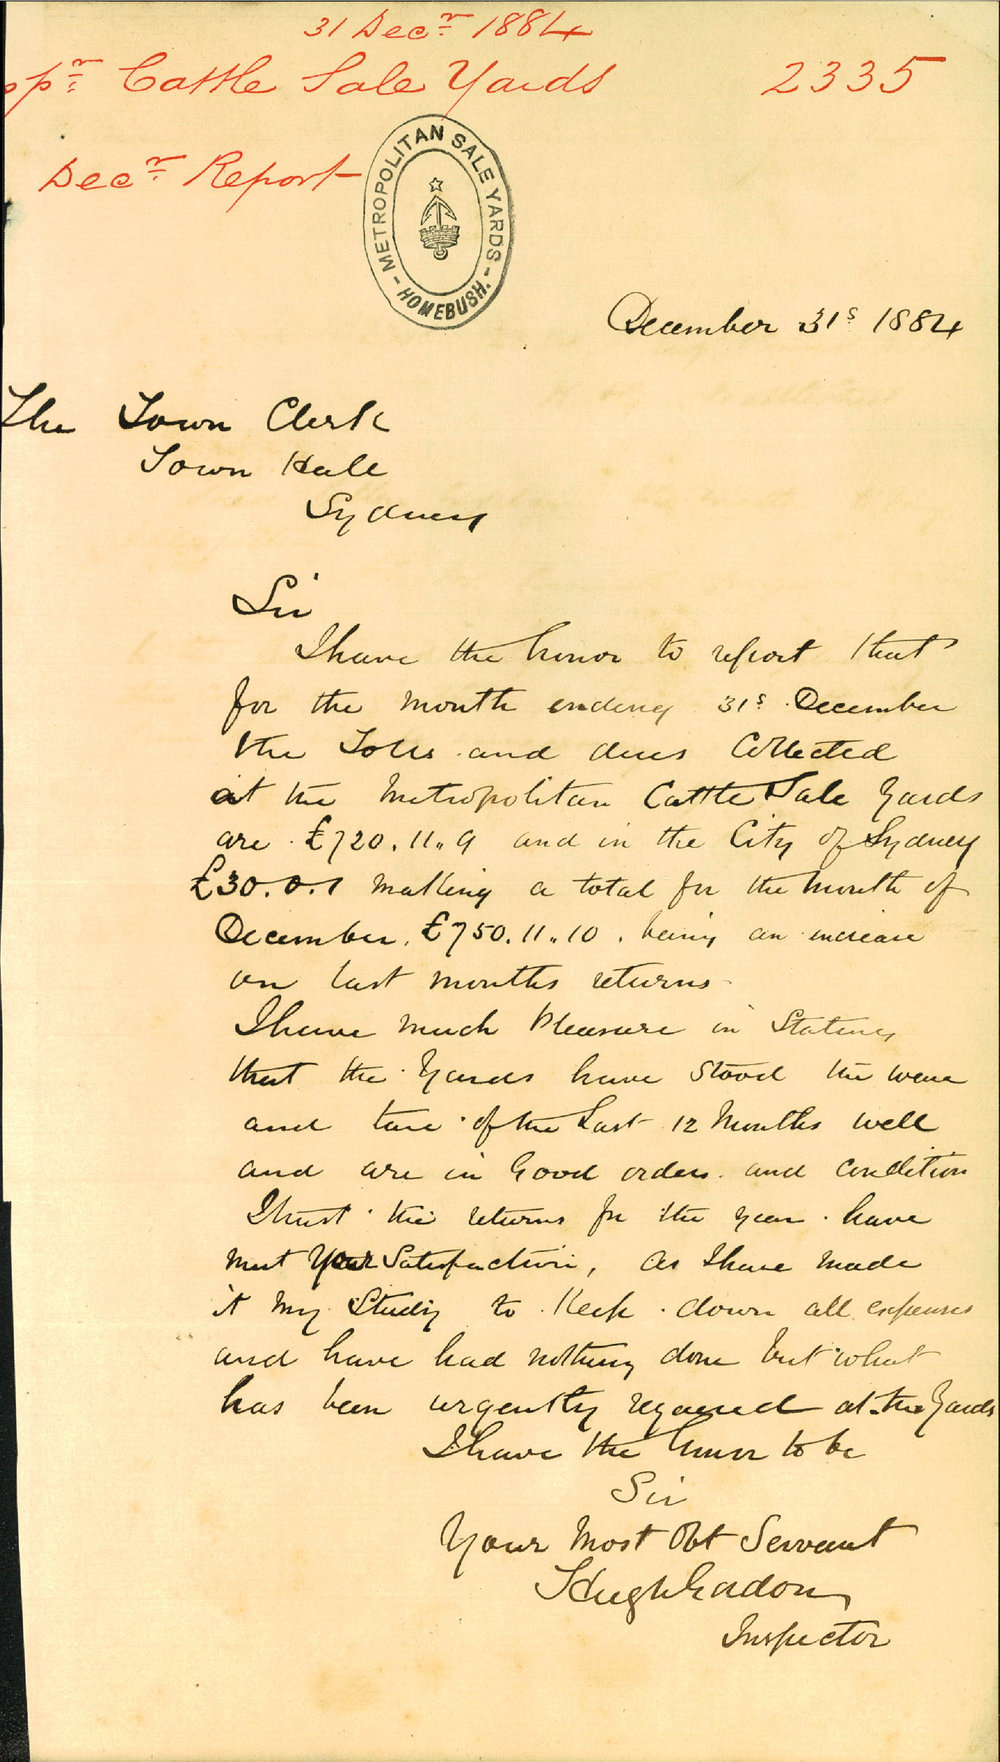 31 Decr 1884
opr Cattle Sale Yards 2335
Decr Report
METROPOLITAN SALE YARDS - HOMEBUSH. -
December 31s 1884
The Town Clerk
Town Hall
Sydney
Sir
I have the honor to report that
for the month ending 31s December
the Tolls and dues Collected
at the Metropolitan Cattle Sale Yards
are £720.11.9 and in the City of Sydney
£30.0.1 making a total for the month of
December. £750.11.10. being an increase
on last months returns
I have much Pleasure in Stating
that the Yards have Stood the wear
and tare of the Last 12 Months well
and are in Good order and condition
I trust the returns for the year have
met Your Satisfaction, as I have made
it my Study to Keep down all expenses
and have had nothing done but what
has been urgently required at the Yards
I have the honor to be
Sir
Your Most Obt Servant
Hugh
Inspector